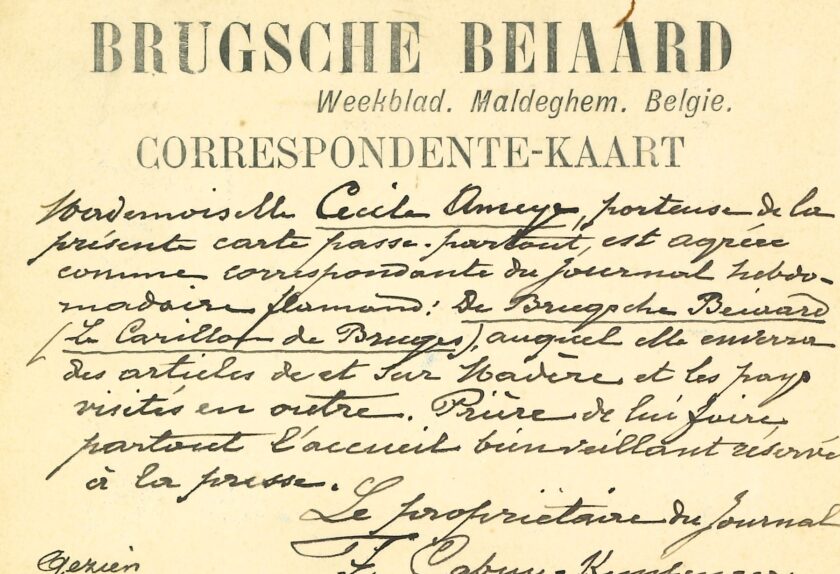 BRUGSCHE BEIAARD
Weekblad. Maldeghem. Belgie.
CORRESPONDENTE-KAART
Mademoiselle Cecile Ameye, porteuse de la
présente carte passe-partout, est agréée
comme correspondante du journal hebdo-
madaire flamand: De Brugsche Beiaard
(Le Carillon de Bruges), auquel elle enverra
des articles de et sur Madère et les pays
visités en outre. Prière de lui faire
partout l'accueil bienveillant réservé
à la presse.
Le propriétaire du Journal
Gezien